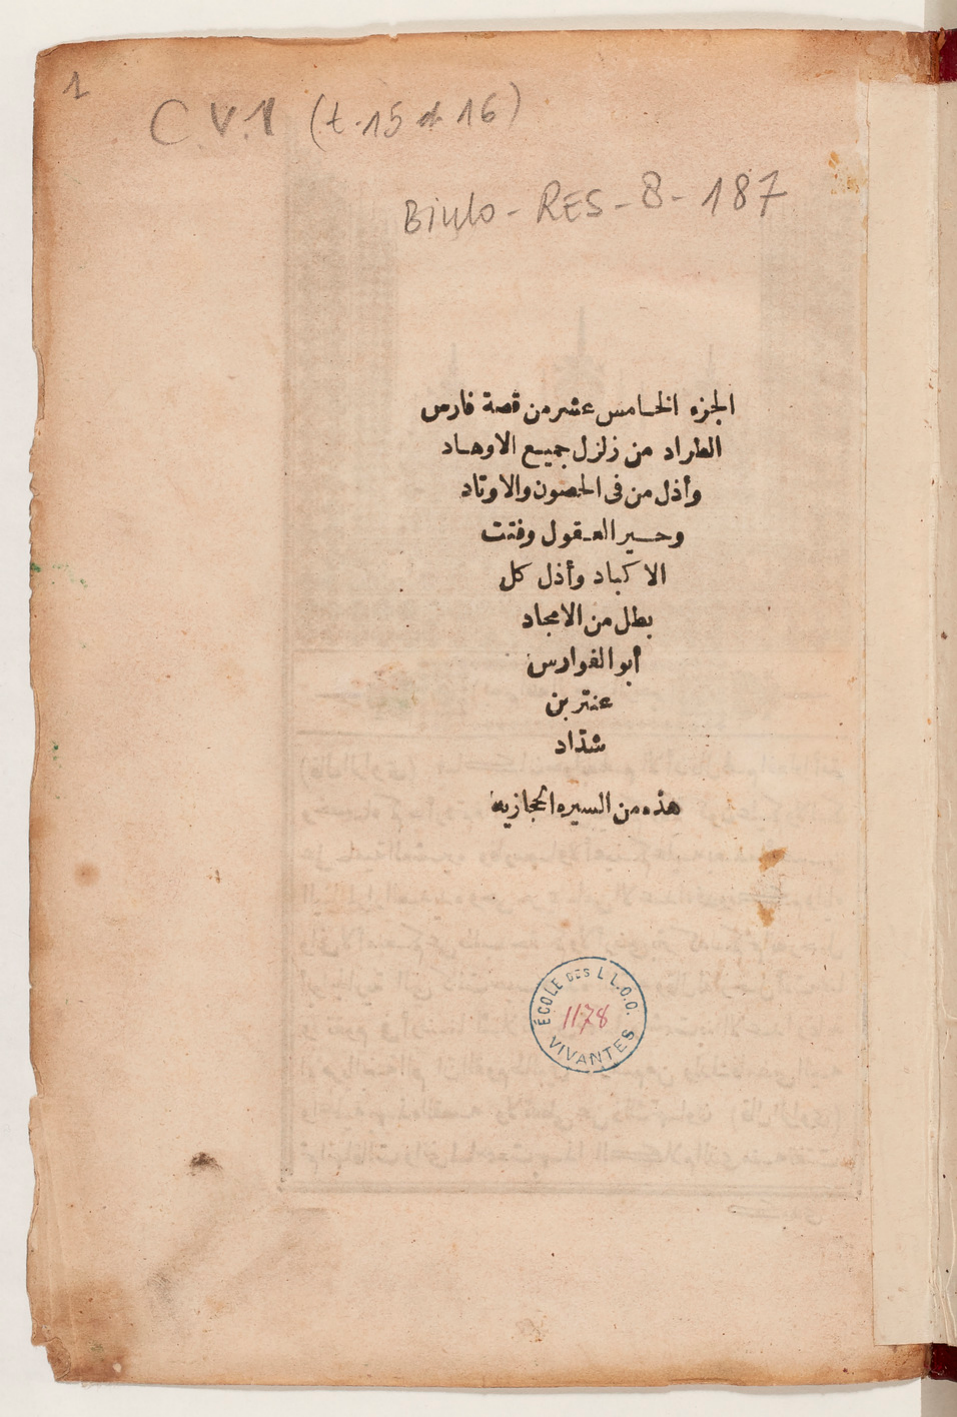 1
C V.1 (t. 15 et 16)
BIULO - RES - 8 - 187
الجزء الخامس عشر من قصة فارس
الطراد من زلزل جميع الاوهاد
وأذل من فى الحصون والاوتاد
وحير العقول وفتت
الاكباد وأذل كل
بطل من الامجاد
أبو الفوارس
عنتر بن
شدّاد
هذه من السيره الحجازيه
ÉCOLE DES L L.O.O.
1178
VIVANTES